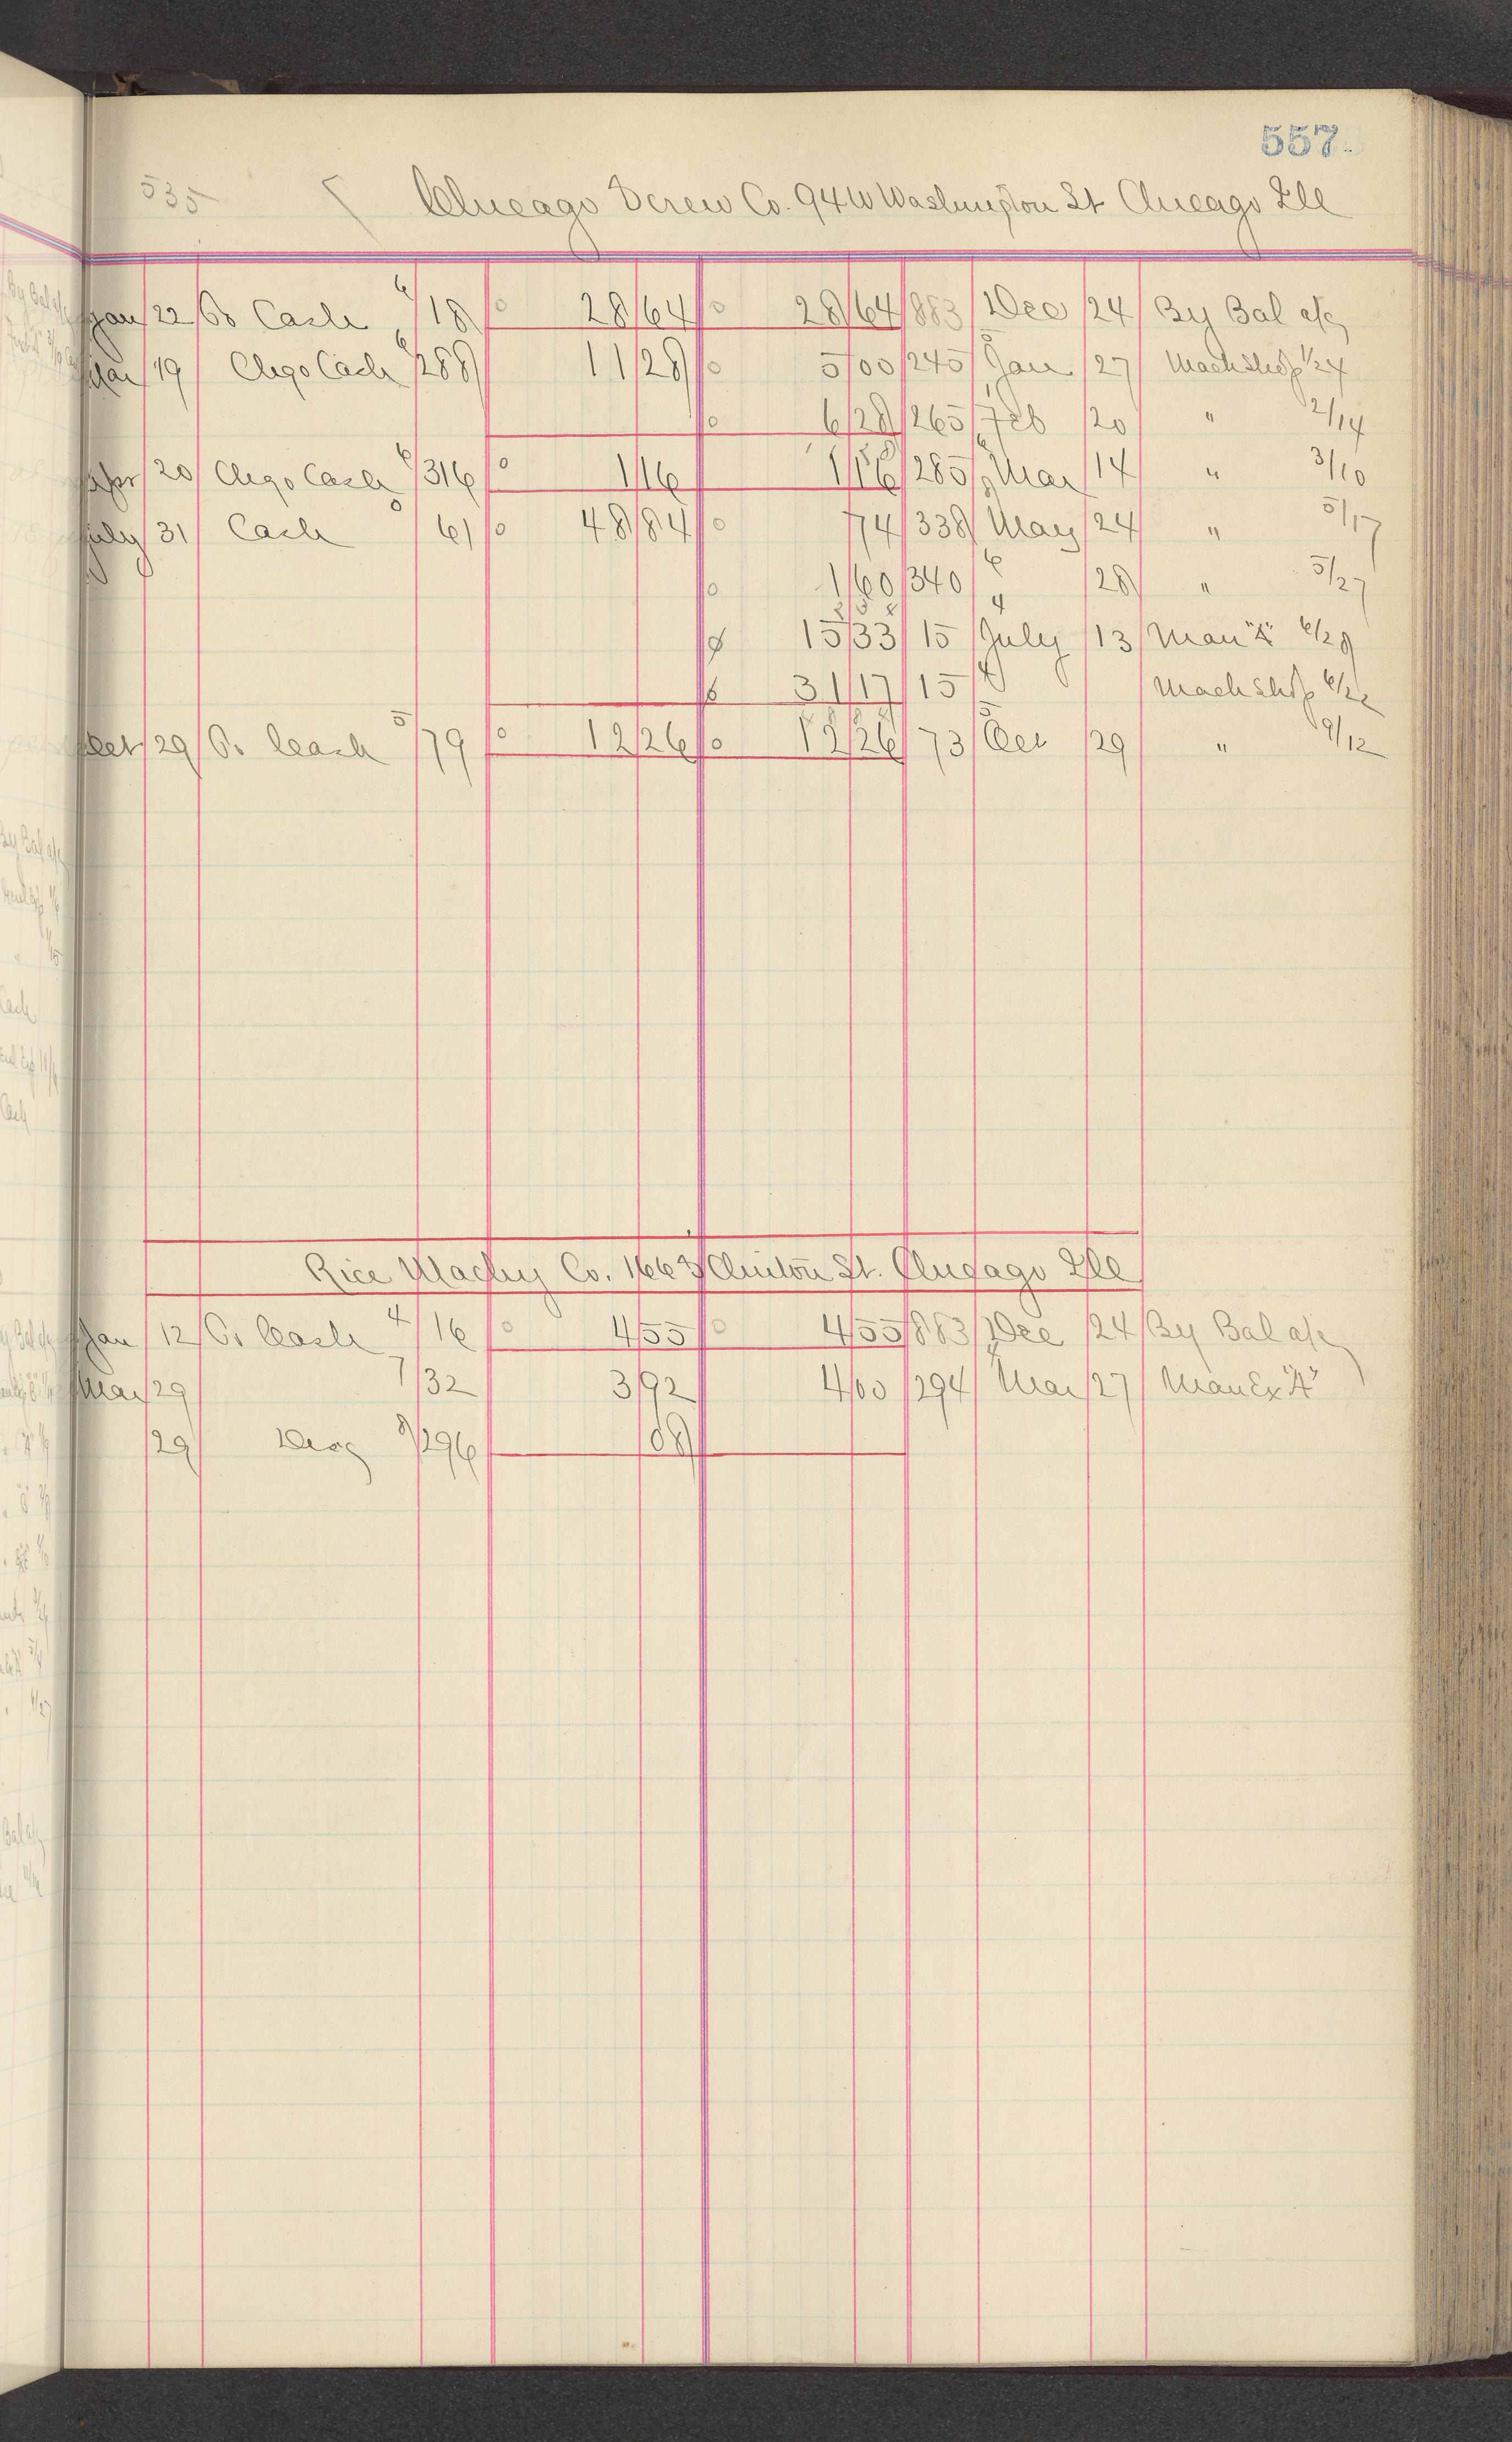 557
535 Chicago Screw Co. 94 W Washington St Chicago Ill
Jan 22 Cash 6/18 28 64 28 64 883 Dec 24 By Bal a/c
Mar 19 Chgo Cash 6/288 11 28 5 00 245 Jan 27 Mach Shop 1/24
6 28 265 Feb 20 " 2/14
Apr 20 Chgo Cash 6/316 1 16 1 16 285 Mar 14 " 3/10
July 31 Cash 61 48 84 74 338 May 24 " 5/17
1 60 340 28 " 5/27
15 33 15 July 13 Man "A" 6/28
31 17 15 Mach Shop 6/22
Oct 29 Cash 5/79 12 26 12 26 73 Oct 29 " 9/12
Rice Machy Co. 166 S Clinton St. Chicago Ill
Jan 12 Cash 4/16 4 55 4 55 883 Dec 24 By Bal a/c
Mar 29 7/32 3 92 4 00 294 Mar 27 Man Ex "A"
29 Disc 8/296 08